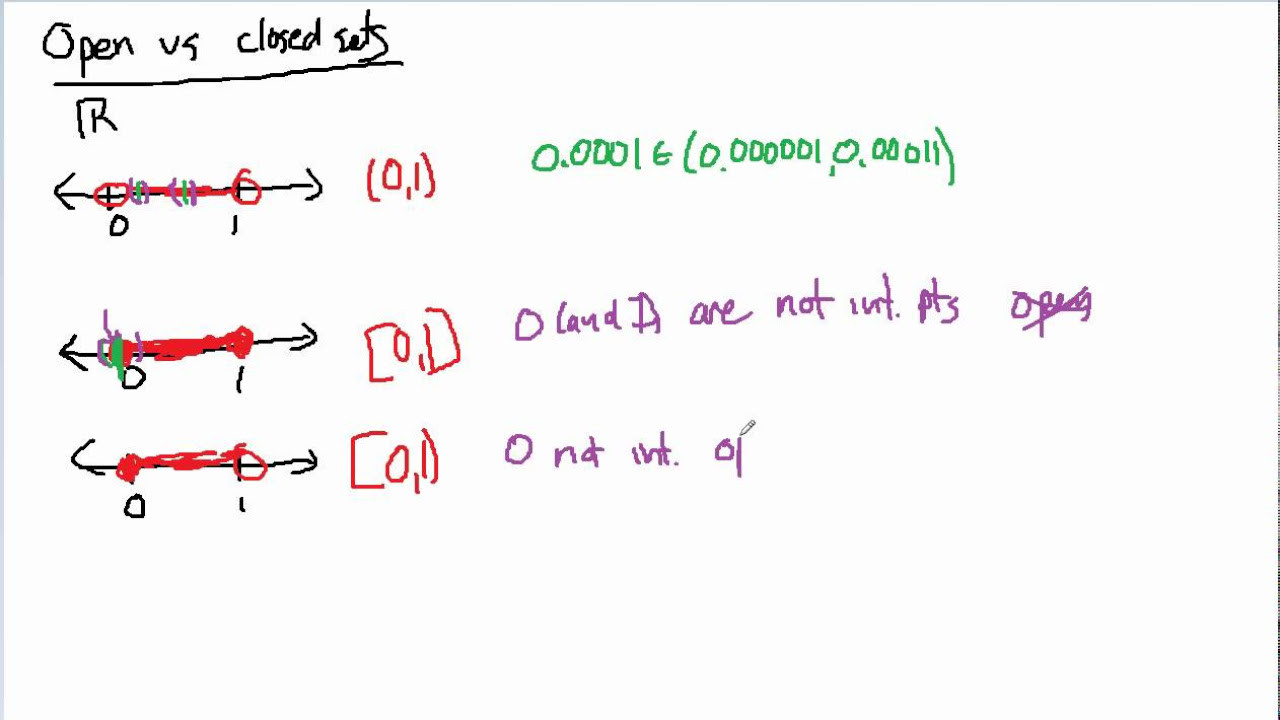 Open vs closed sets
ℝ
0 1 (0,1) 0.0001 ∈ (0.000001, 0.00011)
0 1 [0,1] 0 (and 1) are not int. pts open
0 1 [0,1) 0 not int. op